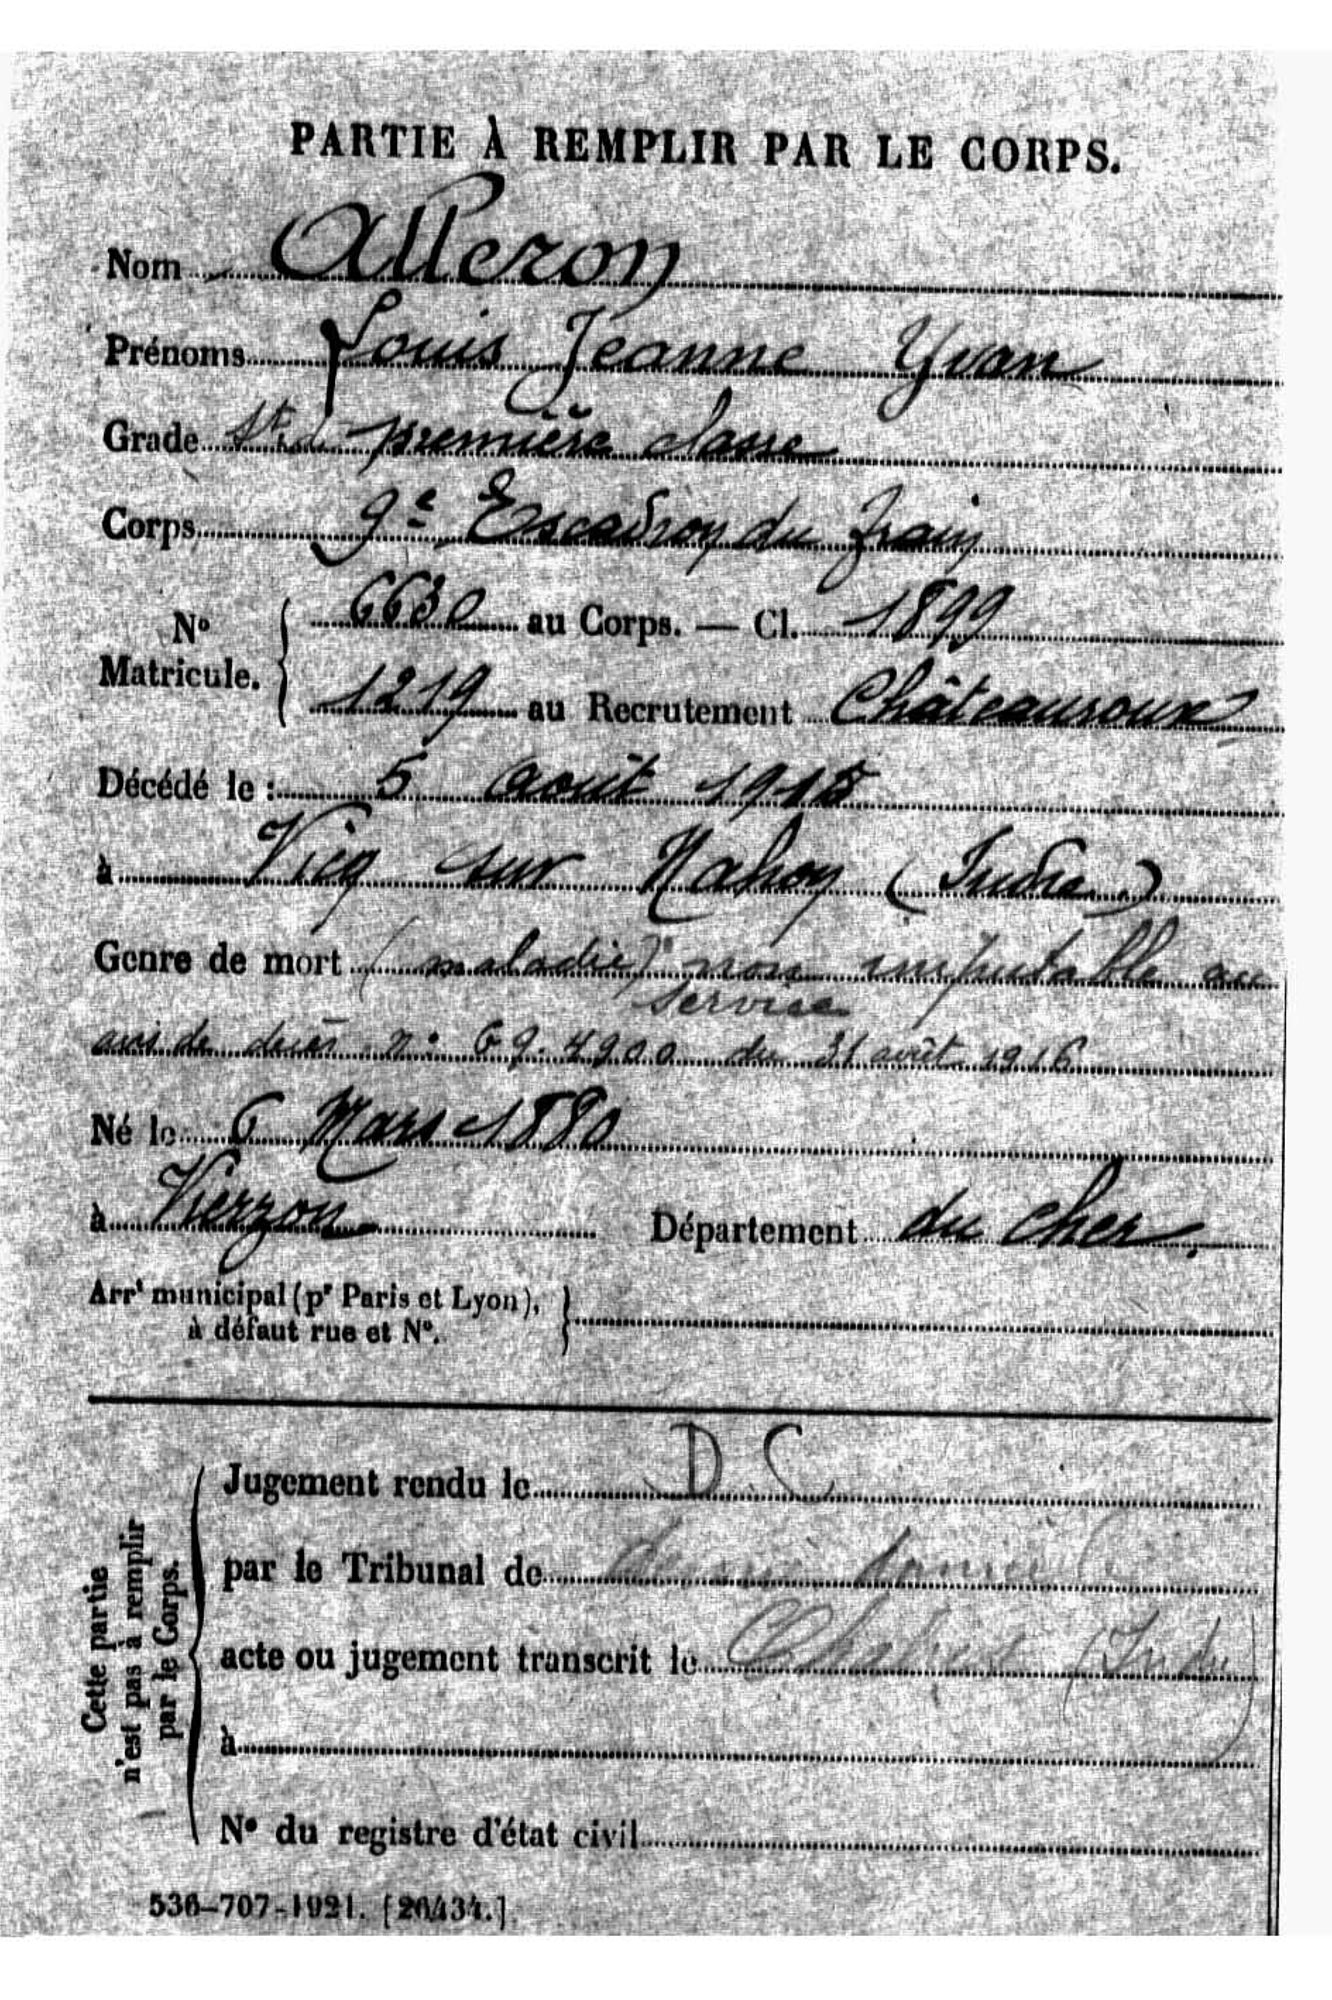 PARTIE À REMPLIR PAR LE CORPS.
Nom Alleron
Prénoms Louis Jeanne Yvan
Grade première classe
Corps 9e Escadron du Train
No Matricule. 6630 au Corps. — Cl. 1899
1219 au Recrutement Châteauroux
Décédé le : 5 août 1915
à Vicq sur Nahon (Indre)
Genre de mort (maladie) non imputable au
service
avis de décès no G9. 4900 du 31 août 1916
Né le 6 Mars 1880
à Vierzon Département du Cher.
Arrt municipal (pr Paris et Lyon),
à défaut rue et No.
Cette partie
n'est pas à remplir
par le Corps.
Jugement rendu le D.C
par le Tribunal de
acte ou jugement transcrit le (Indre)
à
No du registre d'état civil
536-707-1921. [26434.]